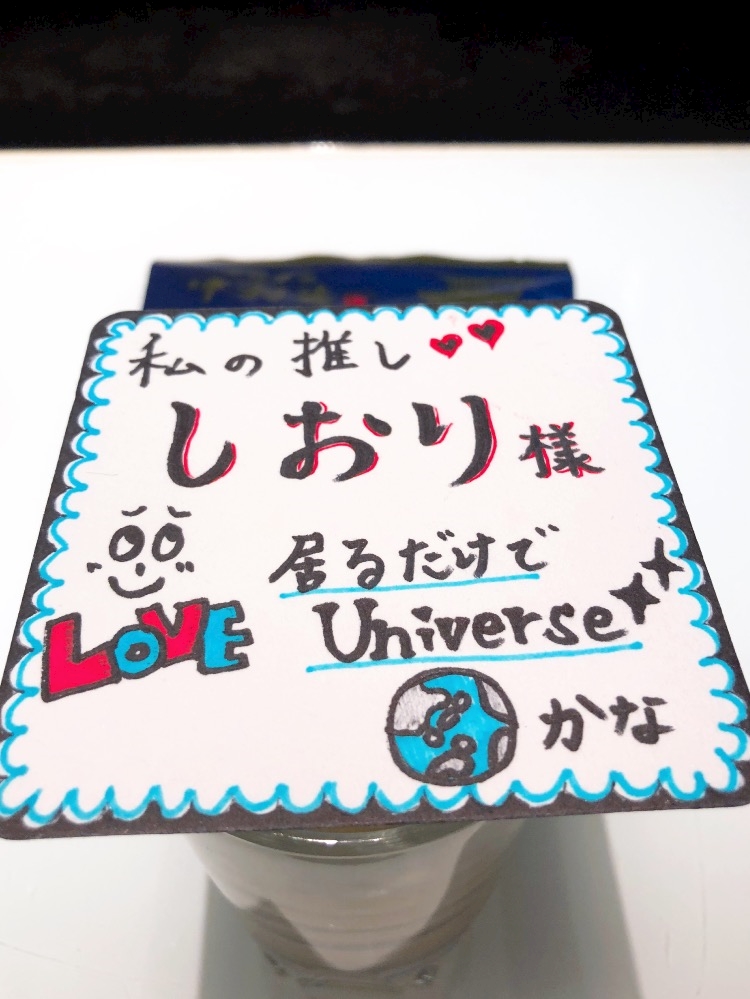 私の推し
しおり様
居るだけで
Universe
LOVE
かな